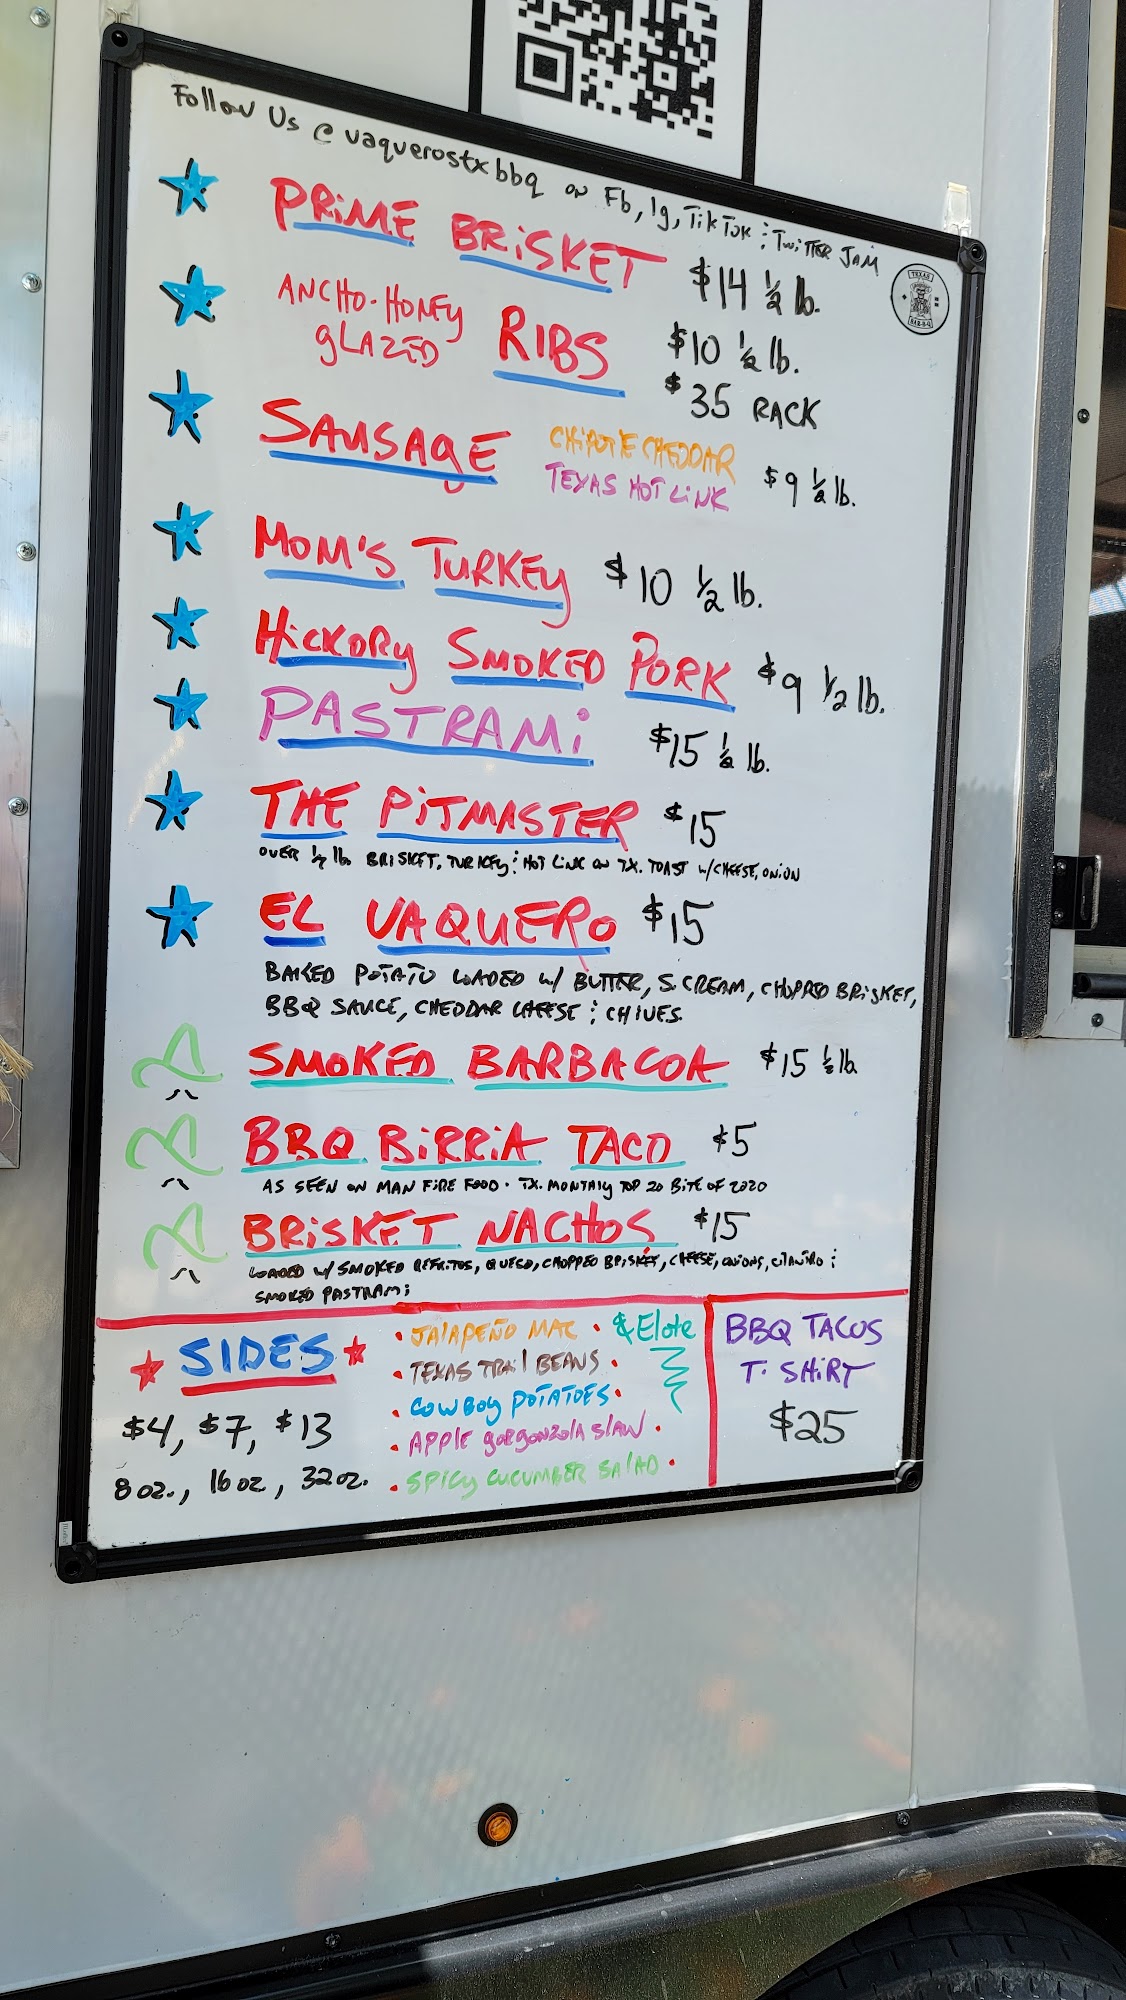 Follow Us @ vaquerostxbbq on Fb, Ig, TikTok & Twitter Jam
TEXAS
BAR-B-Q
PRIME BRISKET $14 1/2 lb.
ANCHO-HONEY GLAZED RIBS $10 1/2 lb.
$35 RACK
SAUSAGE CHIPOTLE CHEDDAR
TEXAS HOT LINK $9 1/2 lb.
MOM'S TURKEY $10 1/2 lb.
HICKORY SMOKED PORK $9 1/2 lb.
PASTRAMI $15 1/2 lb.
THE PITMASTER $15
OVER 1/2 lb BRISKET, TURKEY & HOT LINK ON TX. TOAST W/CHEESE, ONION
EL VAQUERO $15
BAKED POTATO LOADED W/ BUTTER, S. CREAM, CHOPPED BRISKET,
BBQ SAUCE, CHEDDAR CHEESE & CHIVES.
SMOKED BARBACOA $15 1/2 lb
BBQ BIRRIA TACO $5
AS SEEN ON MAN FIRE FOOD · TX. MONTHLY TOP 20 BITE OF 2020
BRISKET NACHOS $15
LOADED W/ SMOKED REFRITOS, QUESO, CHOPPED BRISKET, CHEESE, ONIONS, CILANTRO &
SMOKED PASTRAMI
SIDES
$4, $7, $13
8 oz., 16 oz, 32 oz.
• JALAPEÑO MAC • & Elote
• TEXAS TRAIL BEANS •
• COWBOY POTATOES •
• APPLE GORGONZOLA SLAW •
• SPICY CUCUMBER SALAD •
BBQ TACOS
T. SHIRT
$25